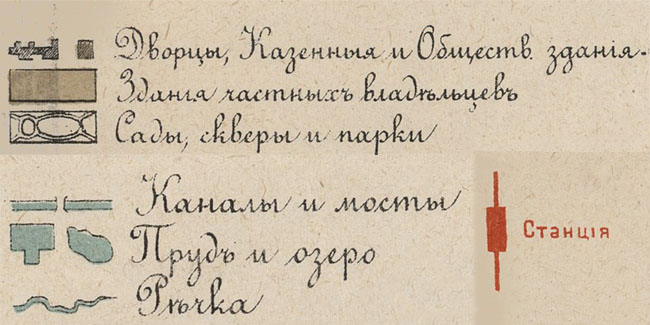 Дворцы, Казенныя и Обществ. зданія.
Зданія частныхъ владѣльцевъ
Сады, скверы и парки
Каналы и мосты
Прудъ и озеро
Рѣчка
Станція